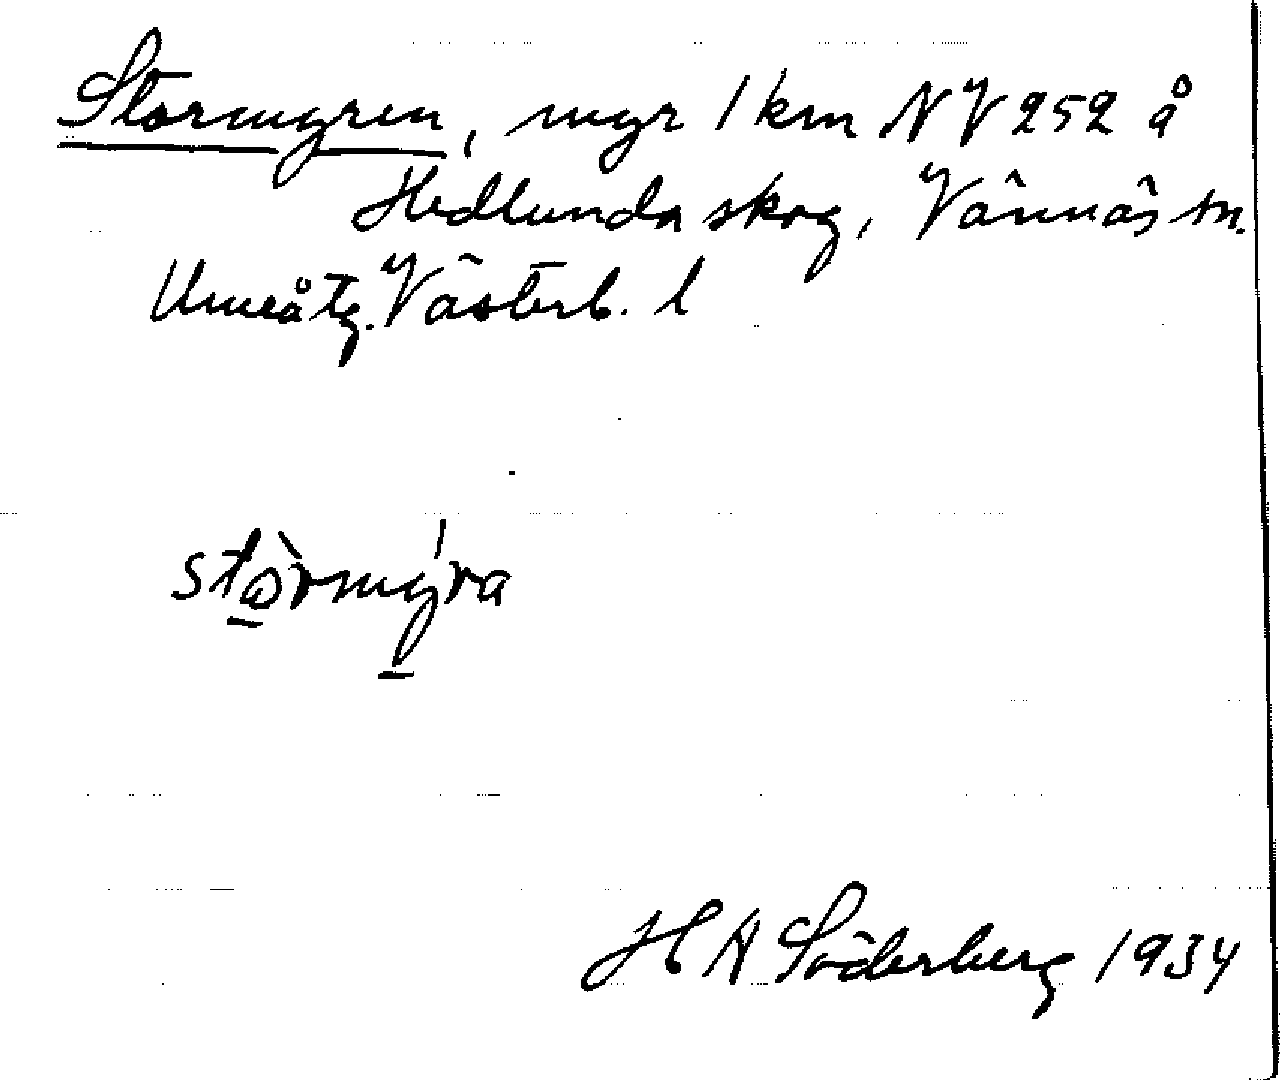 Stormyren, myr 1 km NV 252 å
Hedlunda skog, Vännäs sn.
Umeå tg. Västerb. l
stòrmýra
H A Söderberg 1934